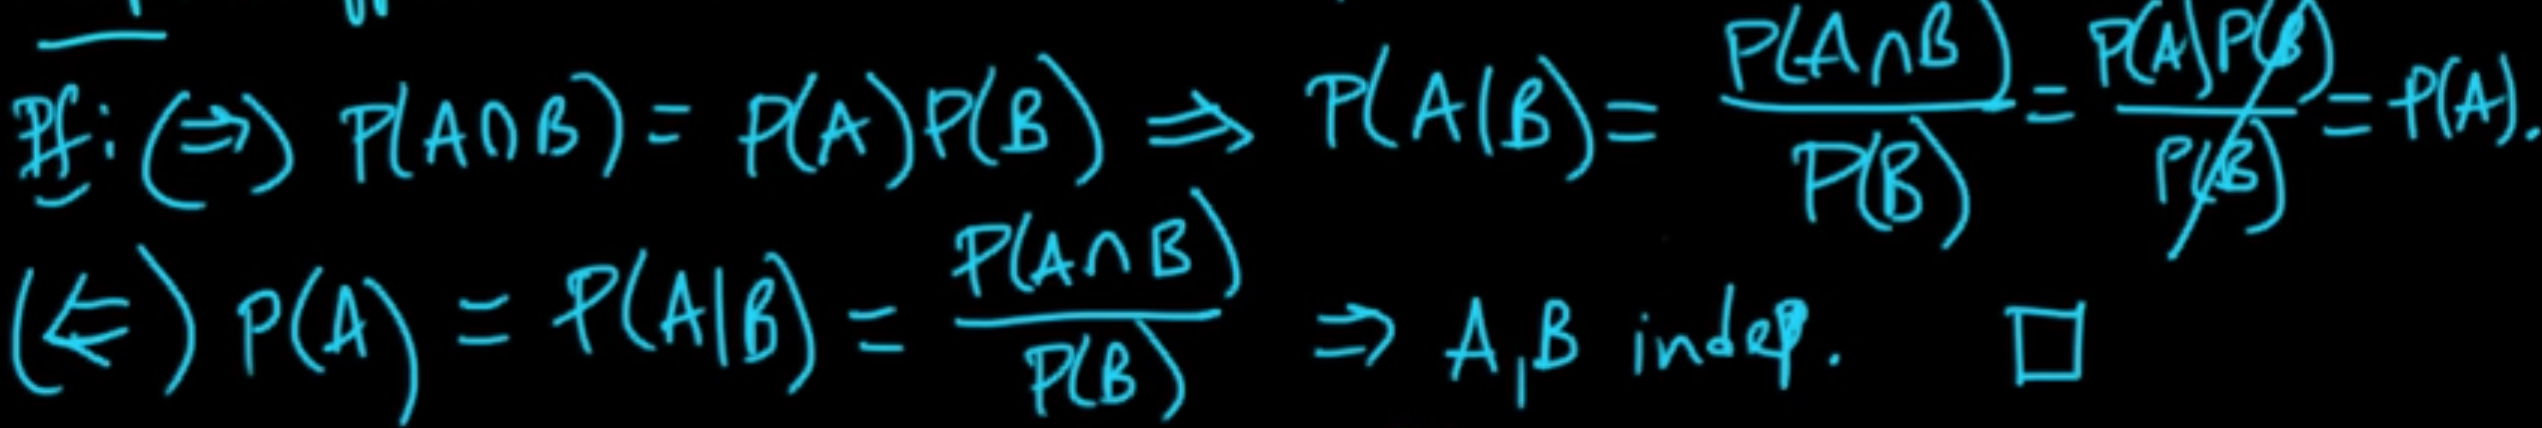 Pf: (⇒) P(A∩B) = P(A)P(B) ⇒ P(A|B) = P(A∩B)/P(B) = P(A)P(B)/P(B) = P(A).
(⇐) P(A) = P(A|B) = P(A∩B)/P(B) ⇒ A,B indep. □